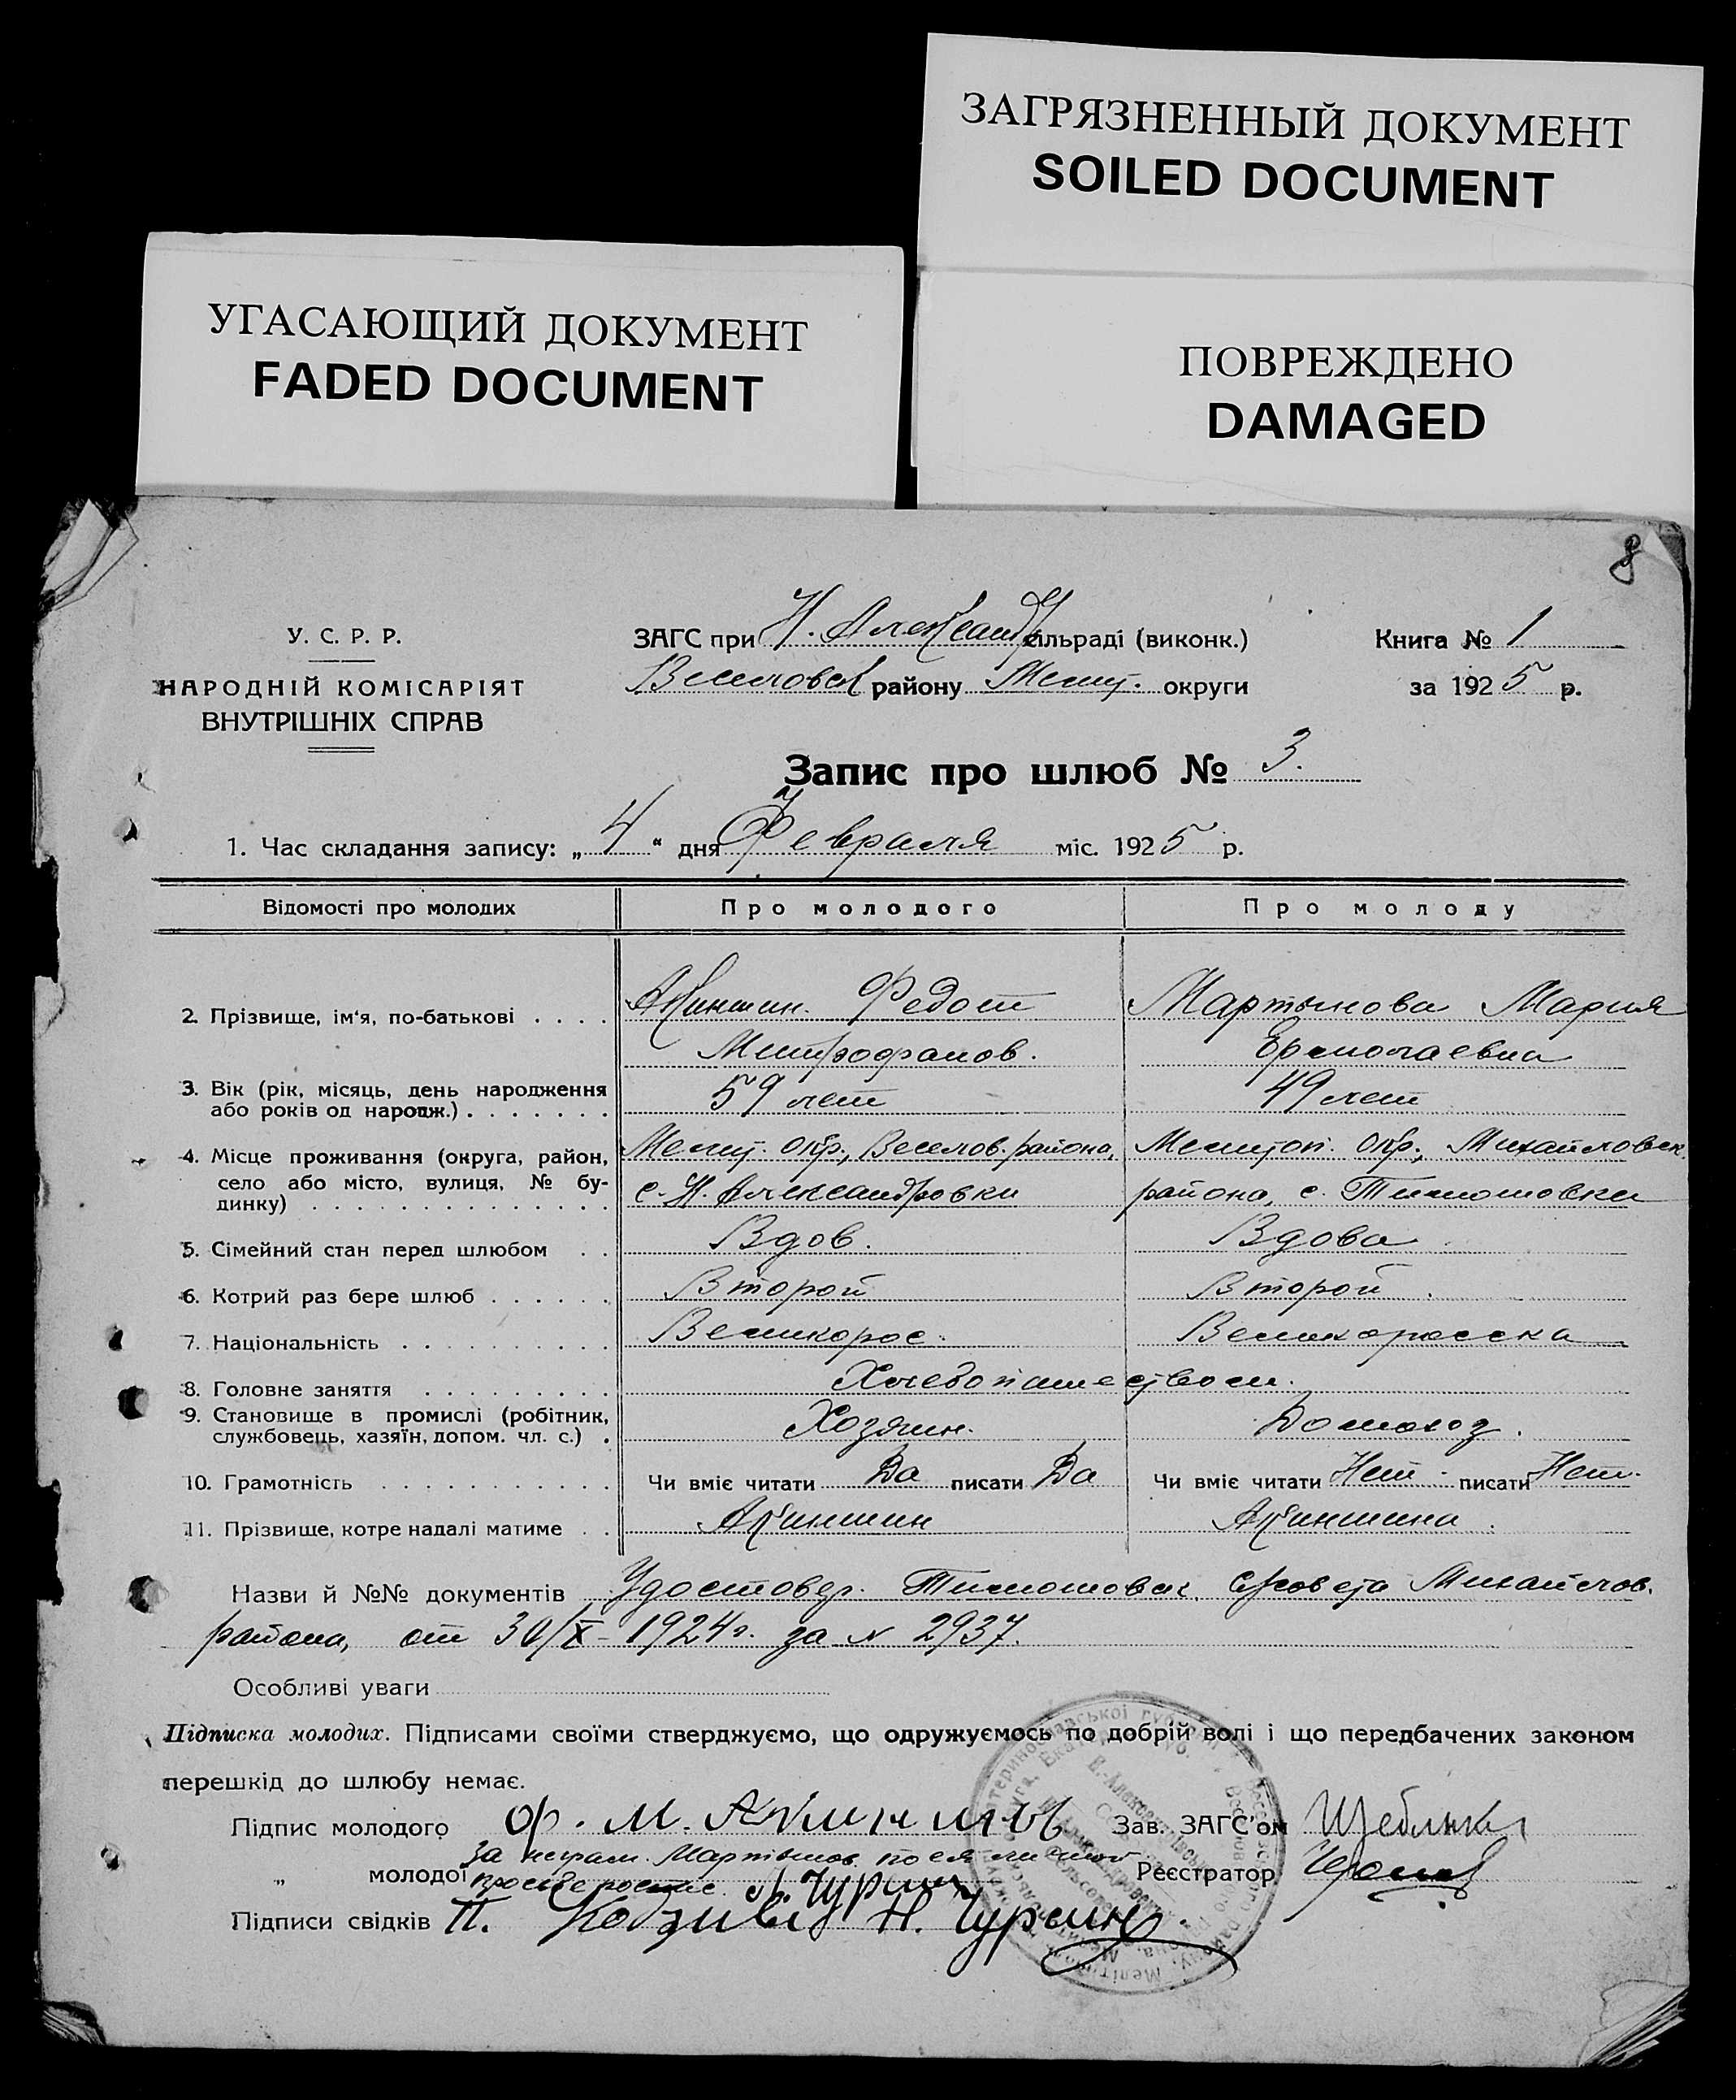 ЗАГРЯЗНЕННЫЙ ДОКУМЕНТ
SOILED DOCUMENT
УГАСАЮЩИЙ ДОКУМЕНТ
FADED DOCUMENT
ПОВРЕЖДЕНО
DAMAGED
8
У. С. Р. Р.
НАРОДНІЙ КОМІСАРІЯТ
ВНУТРІШНІХ СПРАВ
ЗАГС при Н. Александр сільраді (виконк.)
Веселовск району Мелит. округи
Книга № 1
за 1925 р.
Запис про шлюб № 3.
1. Час складання запису: „4“ дня Февраля міс. 1925 р.
Відомості про молодих Про молодого Про молоду
2. Прізвище, ім‘я, по-батькові . . . . Акиншин. Федот Мартынова Мария
Митрофанов. Ермолаевна
3. Вік (рік, місяць, день народження
або років од народж.) . . . . . . . 59 лет 49 лет
4. Місце проживання (округа, район, Мелит. окр., Веселов. района, Мелитоп. окр., Михайловск.
село або місто, вулиця, № бу- с. Н. Александровки района, с. Тимошовки
динку) . . . . . . . . . . . . . .
5. Сімейний стан перед шлюбом . . Вдов. Вдова
6. Котрий раз бере шлюб . . . . . . Второй Второй
7. Національність . . . . . . . . . . Великорос. Великоросска
8. Головне заняття . . . . . . . . . Хлебопашеством.
9. Становище в промислі (робітник,
службовець, хазяїн, допом. чл. с.) . Хозяин. Домохоз.
10. Грамотність . . . . . . . . . . . Чи вміє читати Да писати Да Чи вміє читати Нет писати Нет.
11. Прізвище, котре надалі матиме . . Акиншин Акиншина
Назви й №№ документів Удостовер. Тимошовск. с/совета Михайлов.
района, от 30/X – 1924 г. за № 2937.
Особливі уваги
Підписка молодих. Підписами своїми стверджуємо, що одружуємось по добрій волі і що передбачених законом
перешкід до шлюбу немає.
Підпис молодого Ф. М. Акиншин Зав. ЗАГС'ом
за неграм. Мартынов. по ея личной
„ молодої просьбе роспис. Реєстратор
Підписи свідків П.